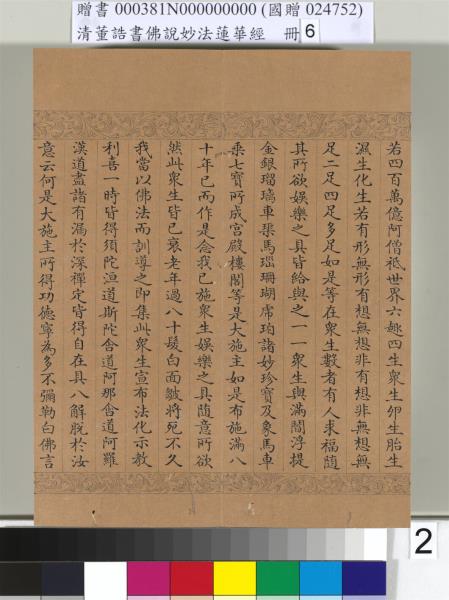 贈書 000381N000000000 (國贈 024752)
清董誥書佛說妙法蓮華經 冊 6
若四百萬億阿僧祇世界六趣四生眾生卵生胎生
濕生化生若有形無形有想無想非有想非無想無
足二足四足多足如是等在眾生數者有人求福隨
其所欲娛樂之具皆給與之一一眾生與滿閻浮提
金銀瑠璃車𤦲馬瑙珊瑚虎珀諸妙珍寶及象馬車
乘七寶所成宮殿樓閣等是大施主如是布施滿八
十年已而作是念我已施眾生娛樂之具隨意所欲
然此眾生皆已衰老年過八十髮白面皺將死不久
我當以佛法而訓導之即集此眾生宣布法化示教
利喜一時皆得須陀洹道斯陀含道阿那含道阿羅
漢道盡諸有漏於深禪定皆得自在具八解脫於汝
意云何是大施主所得功德寧為多不彌勒白佛言
2